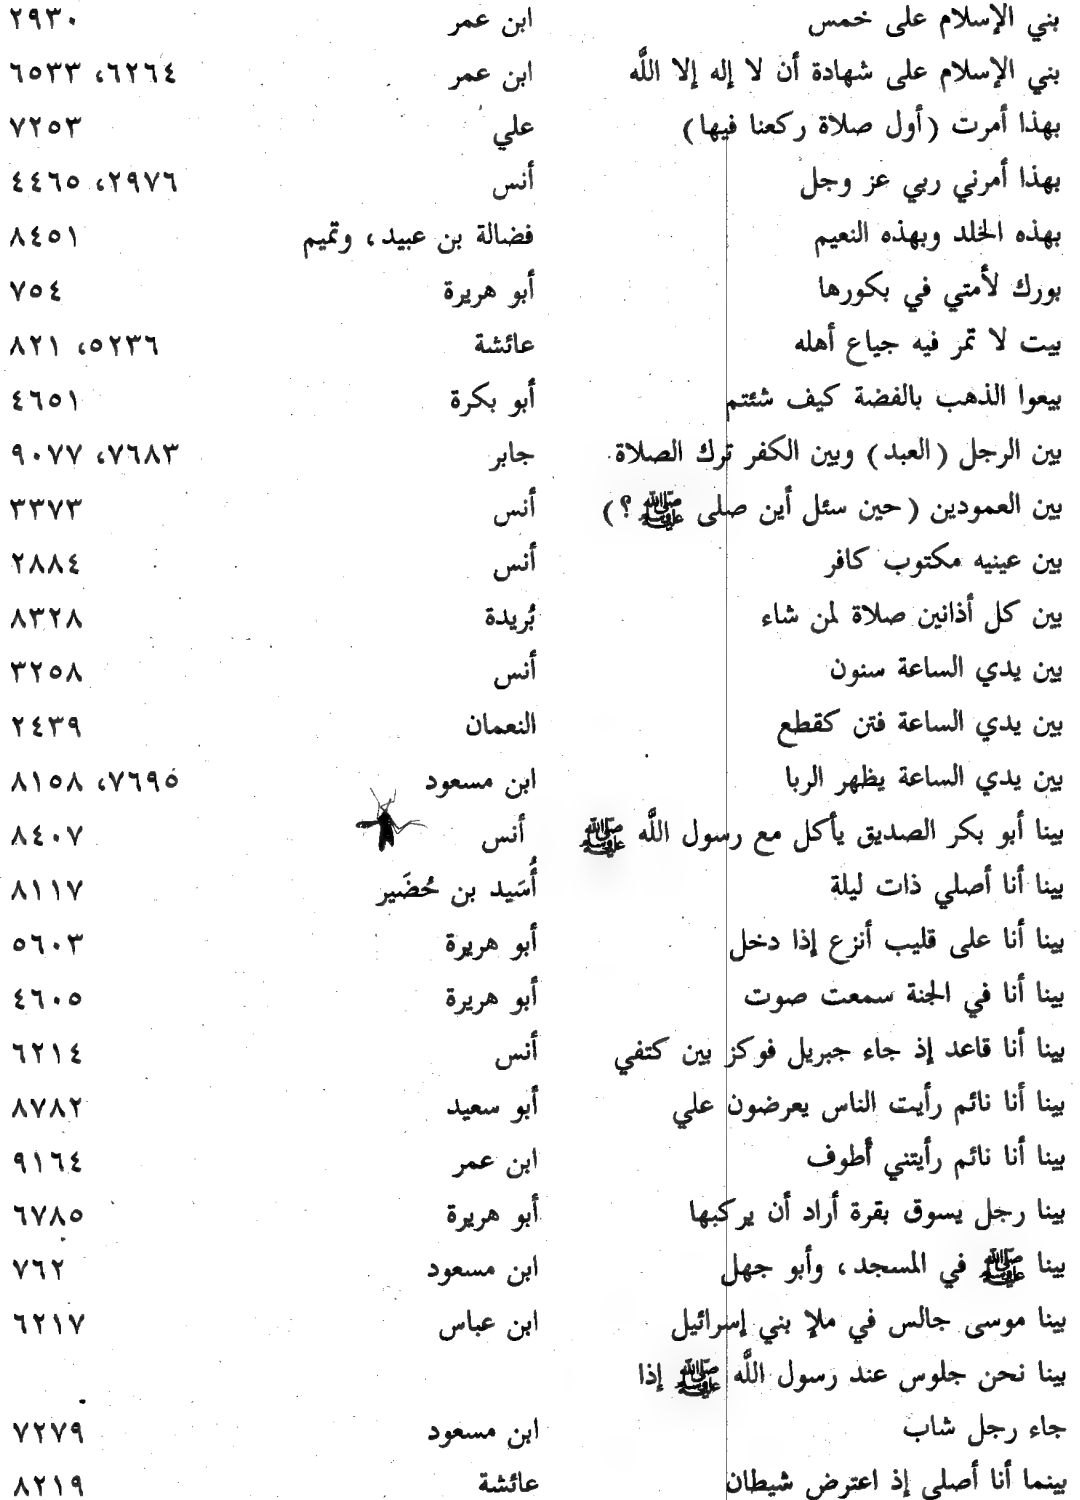 بني الإسلام على خمس ابن عمر ٢٩٣٠
بني الإسلام على شهادة أن لا إله إلا اللَّه ابن عمر ٦٢٦٤، ٦٥٣٣
بهذا أمرت (أول صلاة ركعنا فيها) علي ٧٢٥٣
بهذا أمرني ربي عز وجل أنس ٢٩٧٦، ٤٤٦٥
بهذه الخلد وبهذه النعيم فضالة بن عبيد، وتميم ٨٤٥١
بورك لأمتي في بكورها أبو هريرة ٧٥٤
بيت لا تمر فيه جياع أهله عائشة ٥٢٣٦، ٨٢١
بيعوا الذهب بالفضة كيف شئتم أبو بكرة ٤٦٥١
بين الرجل (العبد) وبين الكفر ترك الصلاة جابر ٧٦٨٣، ٩٠٧٧
بين العمودين (حين سئل أين صلى ﷺ ؟) أنس ٣٣٧٣
بين عينيه مكتوب كافر أنس ٢٨٨٤
بين كل أذانين صلاة لمن شاء بُريدة ٨٣٢٨
بين يدي الساعة سنون أنس ٣٢٥٨
بين يدي الساعة فتن كقطع النعمان ٢٤٣٩
بين يدي الساعة يظهر الربا ابن مسعود ٧٦٩٥، ٨١٥٨
بينا أبو بكر الصديق يأكل مع رسول اللَّه ﷺ أنس ٨٤٠٧
بينا أنا أصلي ذات ليلة أُسَيد بن حُضَير ٨١١٧
بينا أنا على قليب أنزع إذا دخل أبو هريرة ٥٦٠٣
بينا أنا في الجنة سمعت صوت أبو هريرة ٤٦٠٥
بينا أنا قاعد إذ جاء جبريل فوكز بين كتفي أنس ٦٢١٤
بينا أنا نائم رأيت الناس يعرضون علي أبو سعيد ٨٧٨٢
بينا أنا نائم رأيتني أطوف ابن عمر ٩١٦٤
بينا رجل يسوق بقرة أراد أن يركبها أبو هريرة ٦٧٨٥
بينا ﷺ في المسجد، وأبو جهل ابن مسعود ٧٦٢
بينا موسى جالس في ملإ بني إسرائيل ابن عباس ٦٢١٧
بينا نحن جلوس عند رسول اللَّه ﷺ إذا
جاء رجل شاب ابن مسعود ٧٢٧٩
بينما أنا أصلي إذ اعترض شيطان عائشة ٨٢١٩